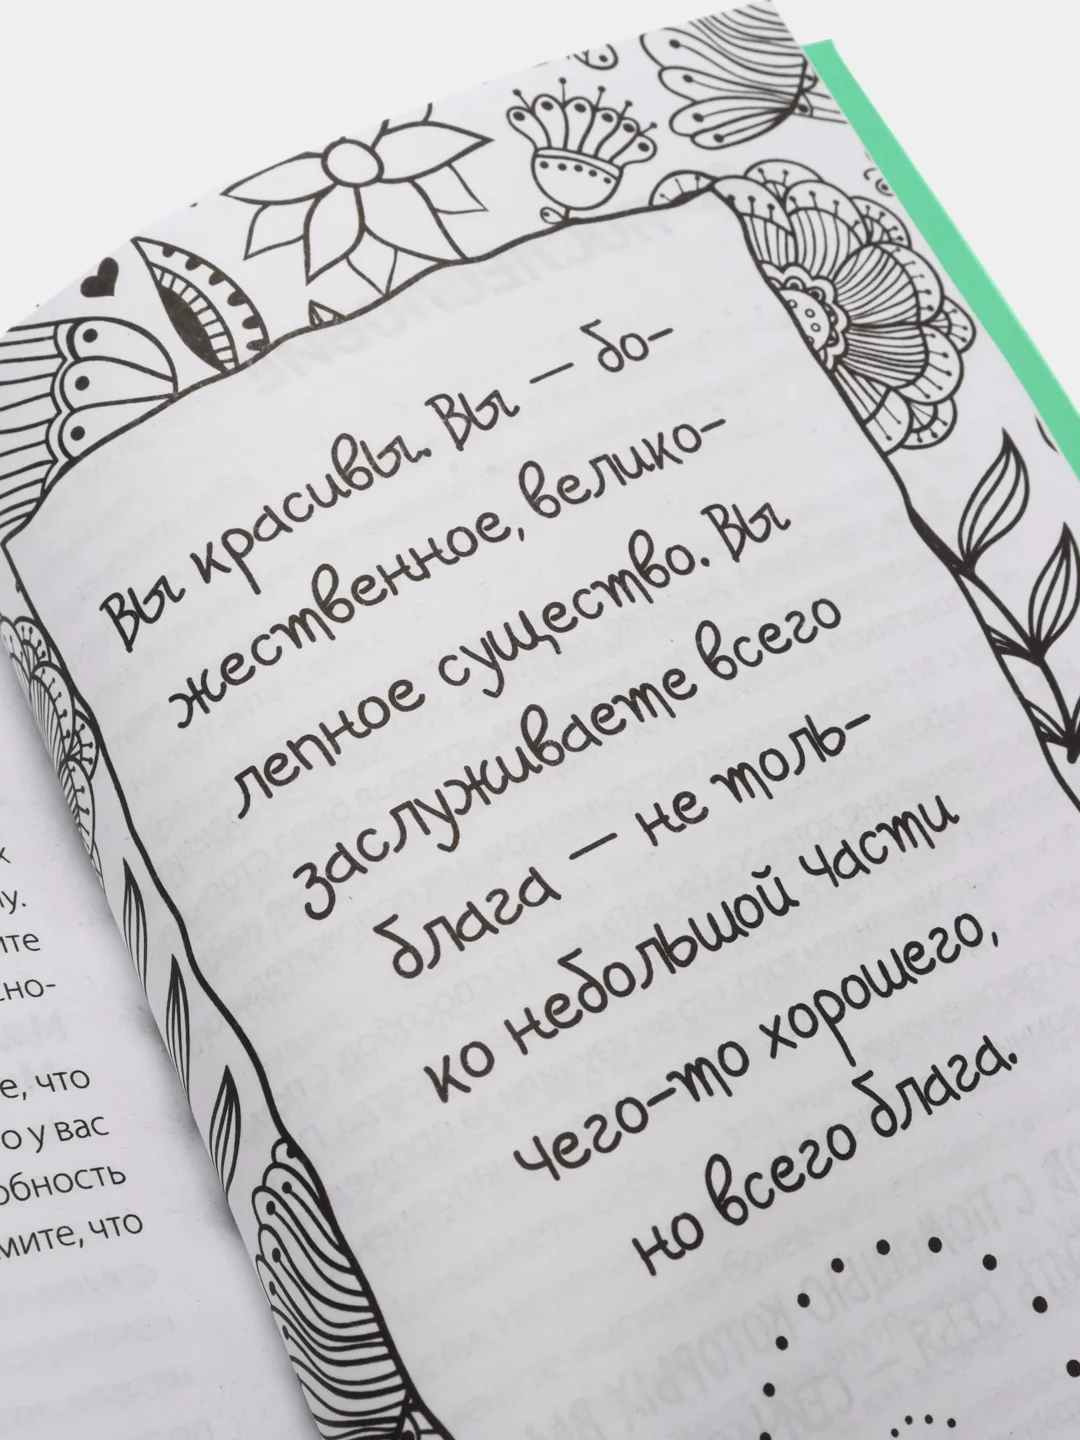 х
ну.
ите
сно-
е, что
о у вас
обность
мите, что
Вы красивы. Вы — бо-
жественное, велико-
лепное существо. Вы
заслуживаете всего
блага — не толь-
ко небольшой части
чего-то хорошего,
но всего блага.